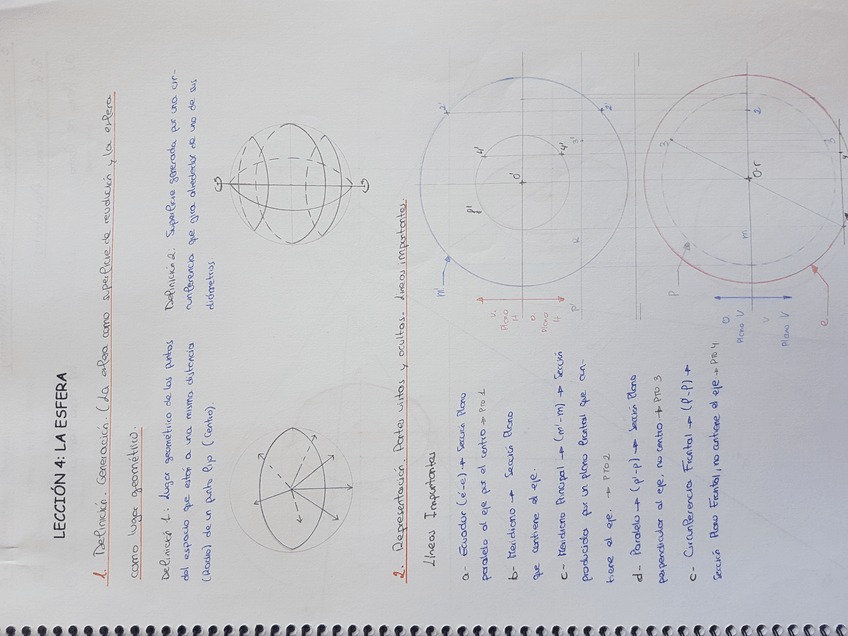 LECCIÓN 4: LA ESFERA
1. Definición. Generación (La esfera como superficie de revolución y la esfera
como lugar geométrico.
Definición 1: Lugar geométrico de los puntos
del espacio que están a una misma distancia
(Radio) de un punto fijo (Centro).
Definición 2: Superficie generada por una cir-
cunferencia que gira alrededor de uno de sus
diámetros
2. Representación. Partes vistas y ocultas. Líneas importantes.
Líneas Importantes
a- Ecuador (e'-e) → Sección Plano
paralelo al eje por el centro → PTO 1
b- Meridiano → Sección Plano
que contiene el eje.
c- Meridiano Principal → (m'-m) → Sección
producida por un plano frontal que con-
tiene el eje. → PTO 2
d- Paralelo → (p'-p) → Sección Plano
perpendicular al eje, no centro → PTO 3
e- Circunferencia Frontal → (f'-f) →
Sección Plano Frontal, no contiene el eje → PTO 4
m'
2'
2'
4'
4'
f'
o'
3'
p'
V.
Plano
H
O.
Plano
H
p
3
3
2
O-r
m
e
O.
Plano V
V
Plano V